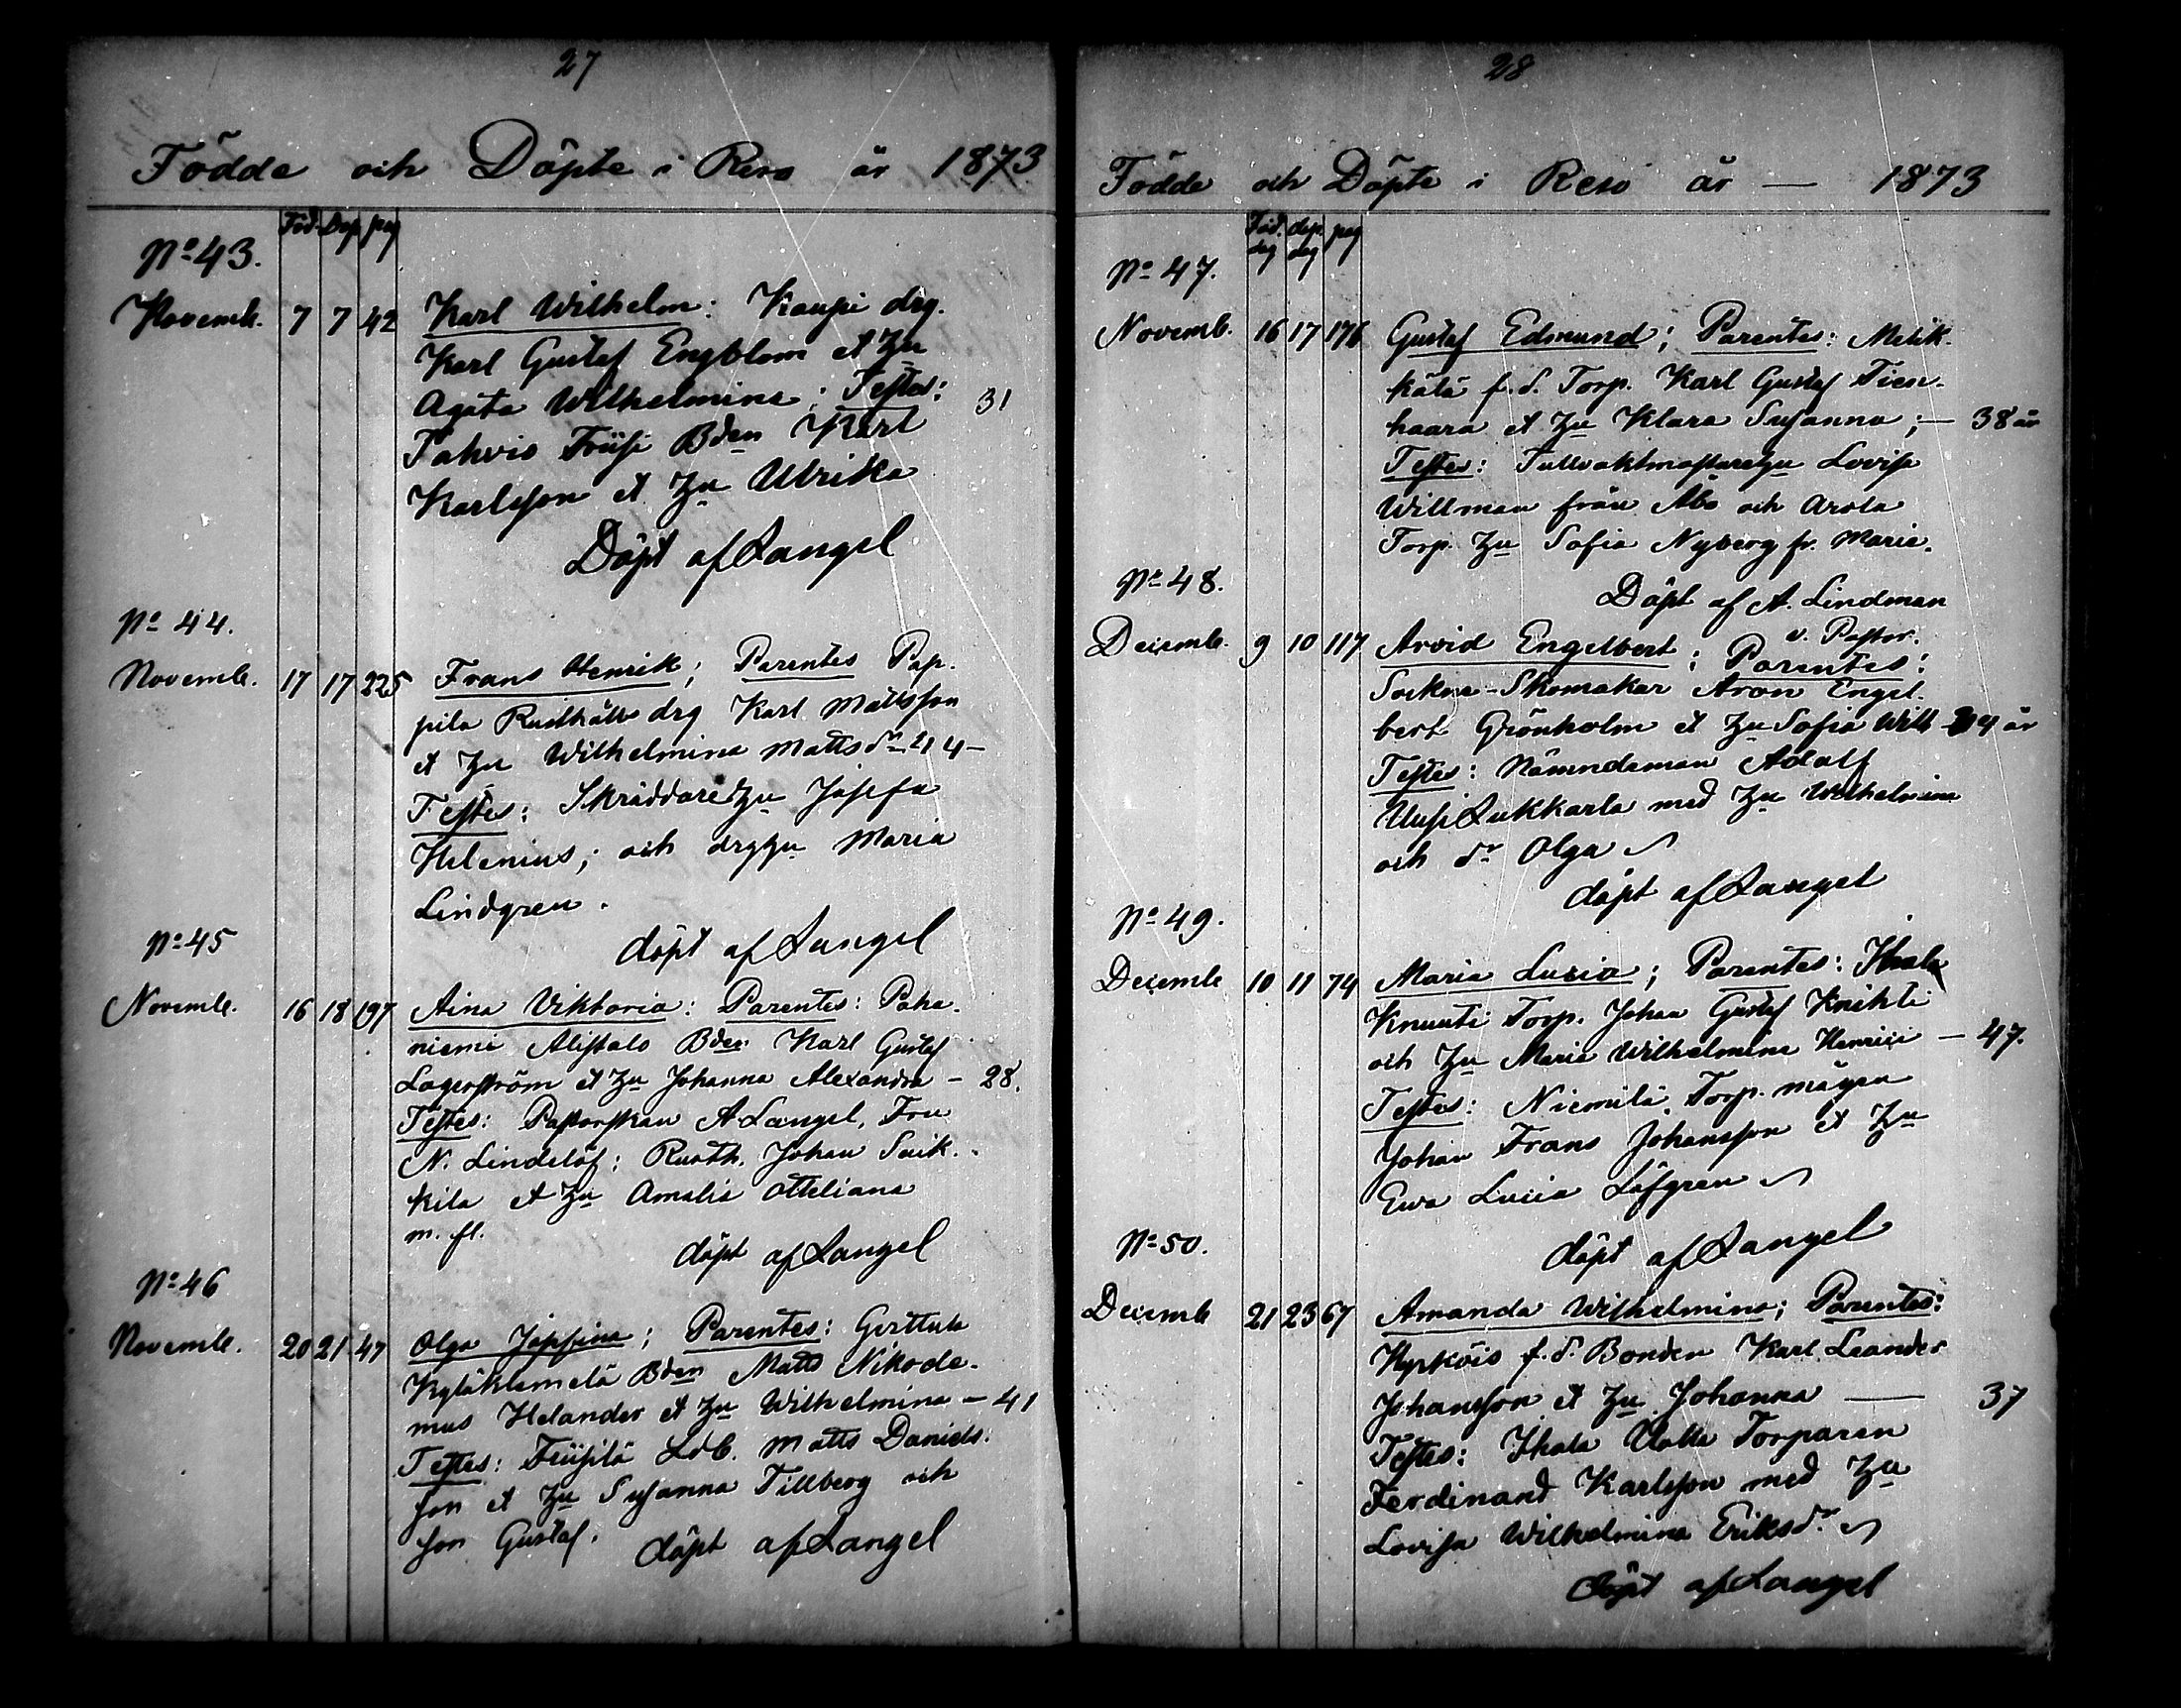 27
Födde och Döpte i Reso år 1873
Föd. Dop pag
No 43.
Novemb. 7 7 42 Karl Wilhelm: Kaupi drg.
Karl Gustaf Engblom et Hu
Agata Wilhelmina: Testes: 31
Pahvis Bden Karl
Karlsson et Hu Ulrika
Döpt af Langel
No 44.
Novemb. 17 17 225 Frans Henrik; Parentes Pap-
pila Rusthålls drg Karl Mattsson
et Hu Wilhelmina Mattsdr 214-
Testes: Skräddarehu Josefa
Helenius; och drghu Maria
Lindgren.
döpt af Langel
No 45
Novemb. 16 18 197 Aina Viktoria: Parentes: Paha-
niemi Alistalo Bden Karl Gustaf
Lagerström et Hu Johanna Alexandra - 28.
Testes: Pastorskan A. Langel, Fru
N. Lindelöf; Rusth. Johan Suik-
kila et Hu Amalia Otteliana
m. fl.
döpt af Langel
No 46
Novemb. 20 21 47 Olga Josfina; Parentes: Gerttula
Kyläklemelä Bden Matts Nikode-
mus Helander et Hu Wilhelmina - 41
Testes: Ldb. Matts Daniels-
son et Hu Susanna Tillberg och
son Gustaf. döpt af Langel
28
Födde och Döpte i Reso år — 1873
Föd. dag döp. dag pag
No 47.
Novemb. 16 17 176 Gustaf Edmund; Parentes: Metik-
kälä f.d. Torp. Karl Gustaf Tien-
haara et Hu Klara Susanna; — 38 år
Testes: Tullvaktmästarehu Lovisa
Willman från Åbo och Arola
Torp. Hu Sofia Nyberg fr. Marie.
Döpt af A. Lindman
v. Pastor.
No 48.
Decemb. 9 10 117 Arvid Engelbert; Parentes:
Sockne-Skomakar Aron Engel-
bert Grönholm et Hu Sofia Wilh - år
Testes: Nämndeman Adolf
Uusi Lukkarla med Hu Wilhelmina
och dr Olga
döpt af Langel
No 49.
Decemb 10 11 74 Maria Lucia; Parentes: Ihala
Knuuti Torp. Johan Gustaf Knihti
och Hu Maria Wilhelmina Henrici — 47.
Testes: Niemilä Torp. mågen
Johan Frans Johansson et Hu
Ewa Lucia Löfgren
döpt af Langel
No 50.
Decemb 21 23 67 Amanda Wilhelmina; Parentes:
Hyrköis f.d. Bonden Karl Leander
Johansson et Hu Johanna — 37
Testes: Ihala Torparen
Ferdinand Karlsson med Hu
Lovisa Wilhelmina Eriksdr
döpt af Langel